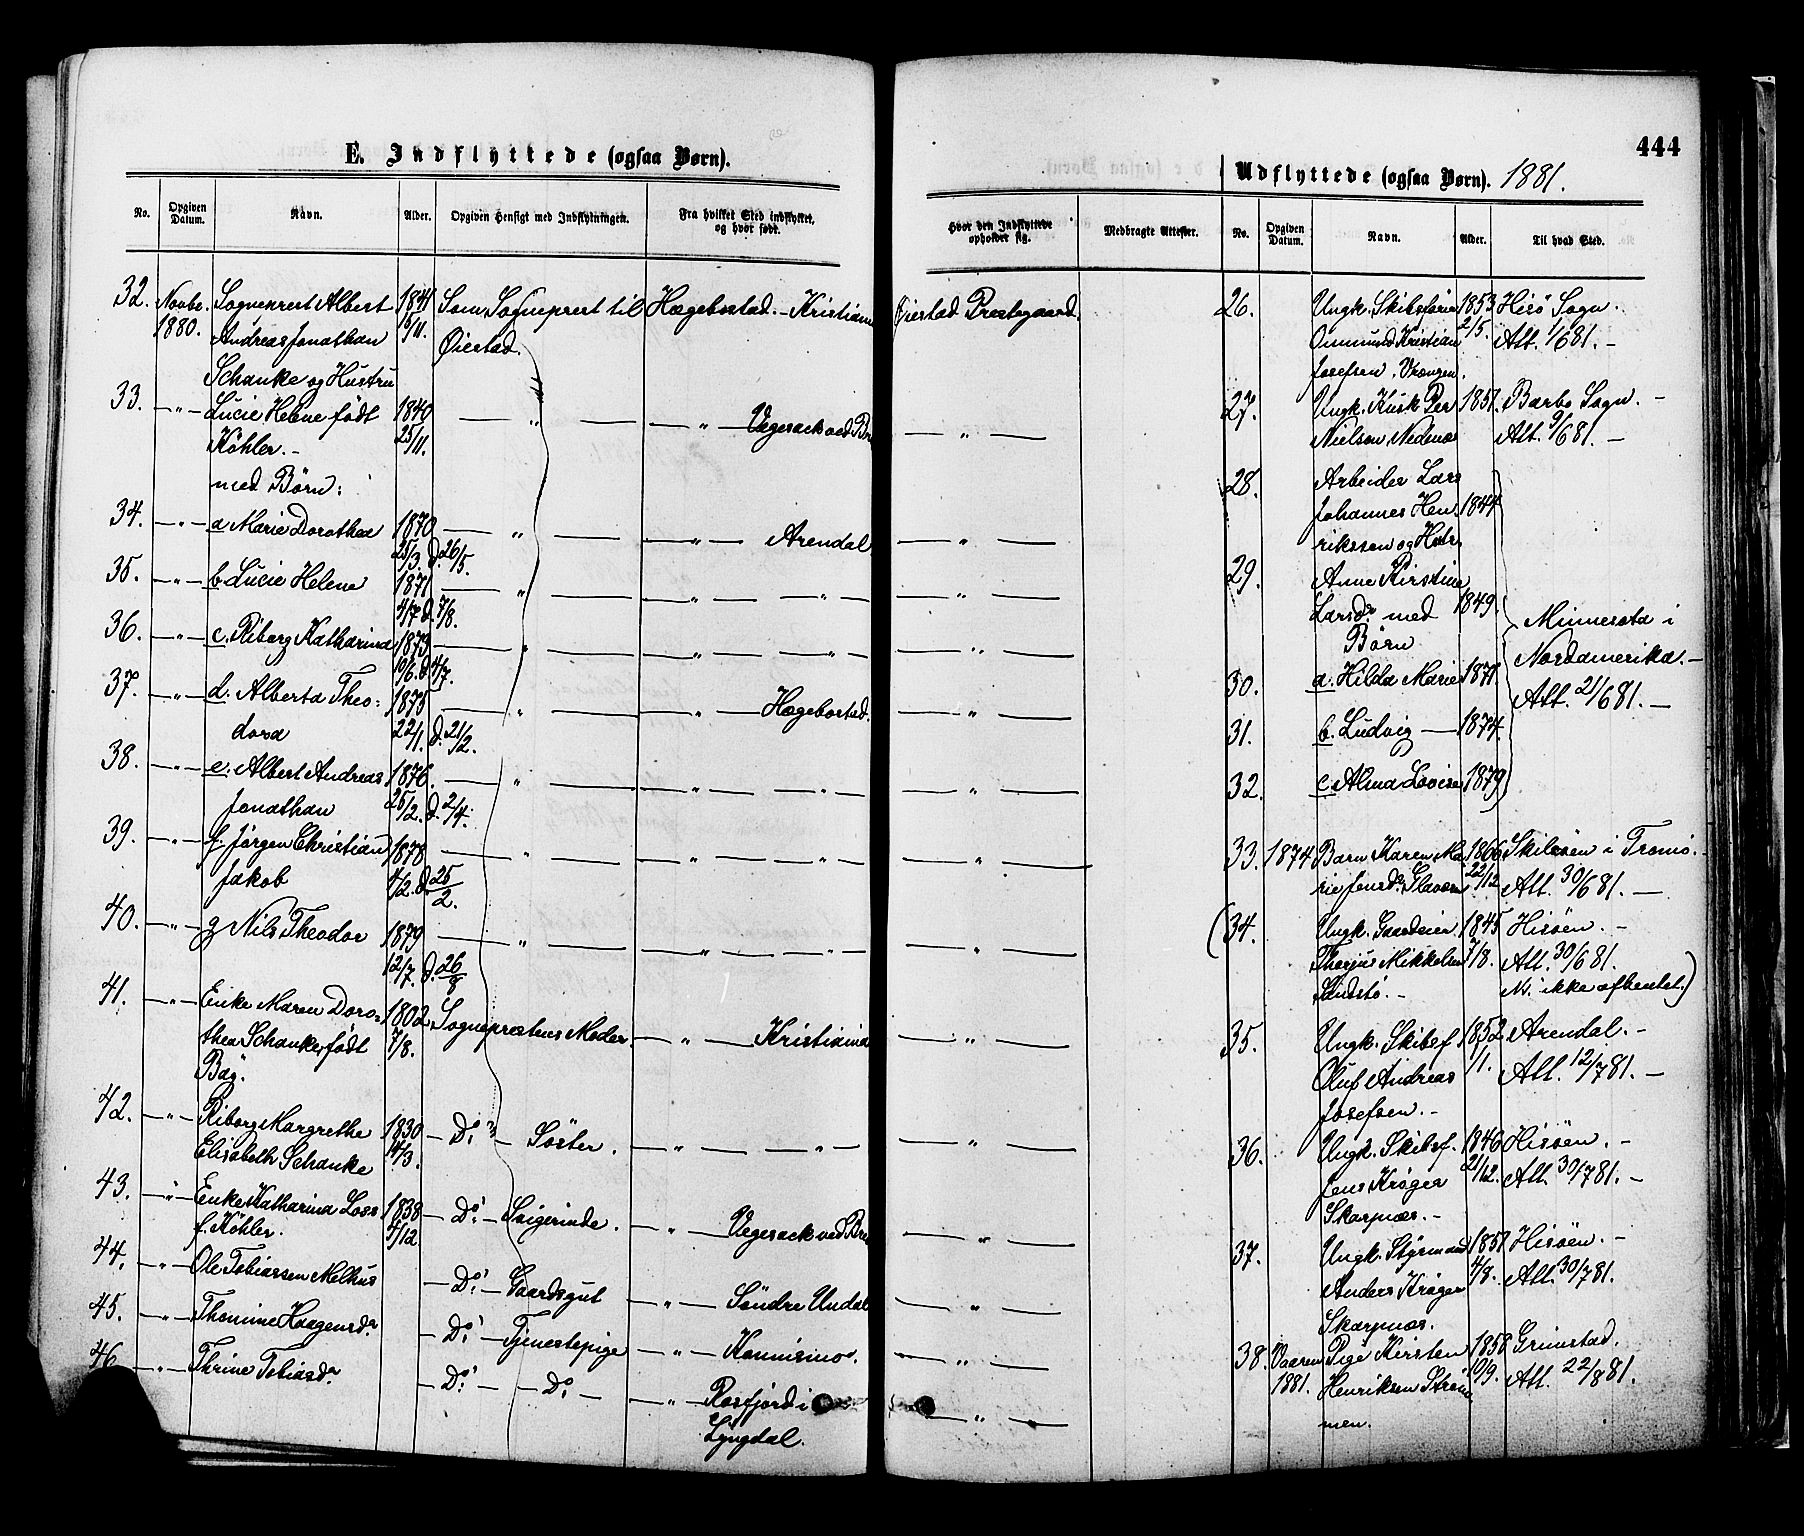 444
E. Indflyttede (ogsaa Børn).
No. Opgiven Datum. Navn. Alder. Opgiven Hensigt med Indflytningen. Fra hvilket Sted indflyttet, og hvor født. Hvor den Indflyttede opholder sig. Medbragte Attester.
32. Novbr. Sogneprest Albert 1841 Som Sogneprest til Hægebostad - Kristians Øiestad Prestegaard.
1880. Andreas Jonathan 16/11. Øiestad.
Schanke og Hustru
33. - " - Lucie Helene født 1840 - " - - " - Vegesack ved Br - " -
Køhler. - 25/11.
med Børn:
34. - " - a Marie Dorothea 1870 - " - - " - Arendal. - " -
25/3. d. 26/5.
35. - " - b. Lucie Helene 1871 - " - - " - - " - - " -
4/7 d. 7/8.
36. - " - c. Riborg Katharina 1873 - " - - " - - " - - " -
10/6. d. 4/7.
37. - " - d. Alberta Theo- 1875 - " - - " - Hægebostad. - " -
dora 22/1. d. 21/2.
38. - " - e. Albert Andreas 1876. - " - - " - - " - - " -
Jonathan 25/2. d. 2/4.
39. - " - f. Jørgen Christian 1878 - " - - " - - " - - " -
Jakob 4/2. d. 25/2.
40. - " - g Nils Theodor 1879 - " - - " - - " - - " -
12/7. d. 26/8
41. - " - Enke Maren Doro- 1802. Sogneprestens Moder. - " - Kristiania - " -
thea Schanke, født 7/8.
Bäs.
42. - " - Riborg Margrethe 1830 - Do. - Söster. - " - - " - - " -
Elisabeth Schanke 14/3.
43. " Enke Katharina Loss 1838 - Do. - Svigerinde. - " - Vegesack ved Bre - " -
f. Køhler. 4/12
44. - " - Ole Tobiassen Melhus - Do. - Gaardsgut - " - Söndre Undal - " -
45. - " - Thomine Haagensdr. - Do. - Tjenestepige - " - Konnismo. - " -
46 - " - Thrine Tobiasdr. - Do. - - Do. - - " - Rosfjord i - " -
Lyngdal.
Udflyttede (ogsaa Børn). 1881.
No. Opgiven Datum. Navn. Alder. Til hvad Sted.
26. Ungk. Skibsfører 1853 Hisö Sogn.
Onmund Kristian 2/5. Att. 1/6 81. -
Josefsen, Vrængen.
27. Ungk. Kusk Per 1851. Barbo Sogn. -
Nielsen Nednes Att. 9/6 81. -
28. Arbeider Lars
Johannes Hen- 1844
rikssen og Hstr.
29. Anne Kirstine
Larsdr. med 1849. Minnesota i
Børn Nordamerika. -
30. a. Hilda Marie 1871 Att. 21/6 81. -
31. b. Ludvig - 1874.
32. c Alma Lovise 1879
33. 1874 Barn Karen Ma- 1866 Skilsøen i Tromö.
rie Jensdr. 22/12 Att. 30/6 81. -
(34. Ungk. Gaardeier 1845 Hisöen. -
Therjus Mikkelsen 7/8. Att. 30/6 81.
Sandstø. - Ns. ikke afhentet.)
35. Ungk. Skibsf. 1852 Arendal. -
Oluf Andreas 1/1. Att. 12/7 81. -
Josefsen. -
36. Ungk. Skibsf. 1846 Hisöen. -
Jens Krøger 21/12. Att. 30/7 81. -
Skarpnæs. -
37. Ungk. Styrmand 1851 Hisöen. -
Anders Krøger 4/8. Att. 30/7 81.
Skarpnæs.
38. Vaaren Pige Kirsten 1858 Grimstad.
1881. Henriksen Ström- 10/9. Att. 22/8 81.
men.